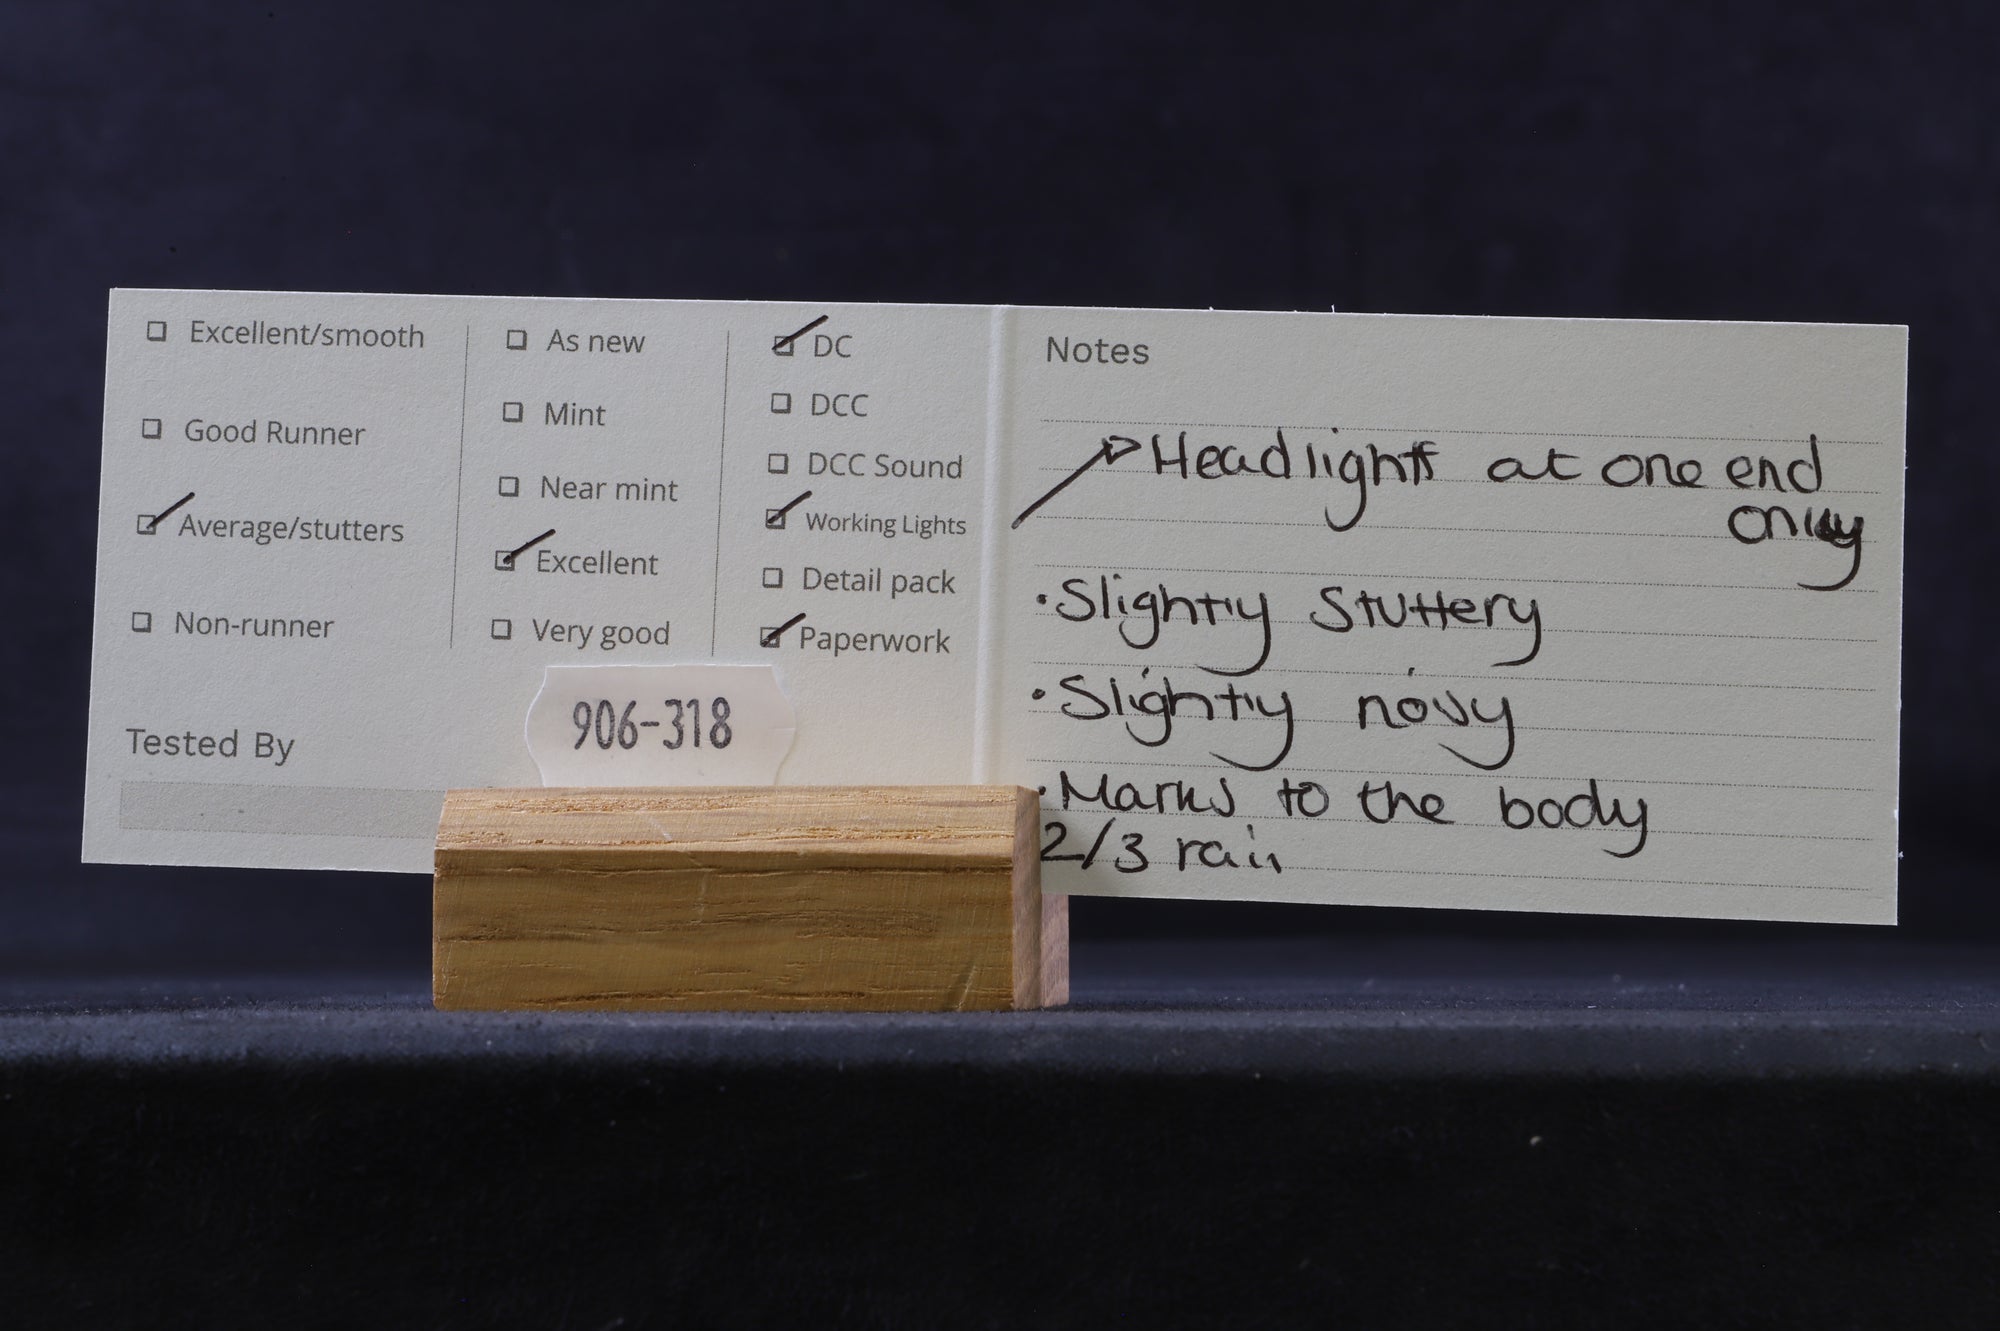 Excellent/smooth
Good Runner
Average/stutters
Non-runner
As new
Mint
Near mint
Excellent
Very good
DC
DCC
DCC Sound
Working Lights
Detail pack
Paperwork
Tested By
906-318
Notes
Headlights at one end
only
·Slightly Stuttery
·Slightly noisy
·Marks to the body
2/3 rail